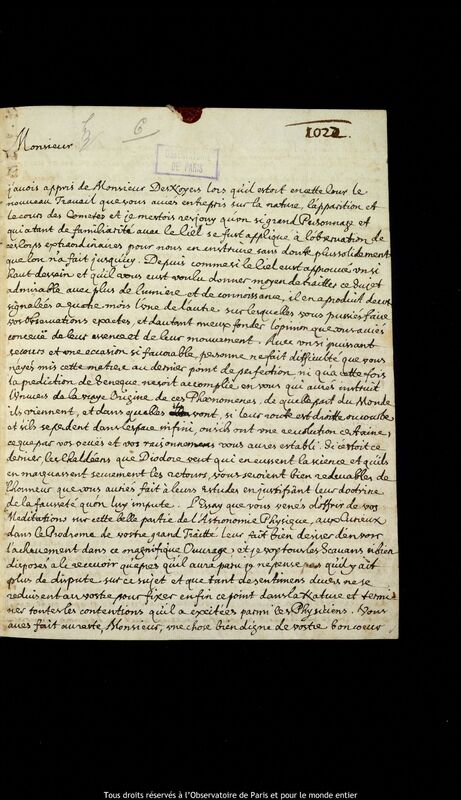 1022.
6
Monsieur
OBSERVATOIRE
DE PARIS
j'avois appris de Monsieur DesNoyers lors qu'il estoit en cette Cour le
nouveau Travail que vous aviés entrepris sur la nature, l'apparition et
le cours des Cometes et je m'estois resjouy qu'un si grand Personnage et
qui a tant de familiarité avec le Ciel se fust appliqué à l'observation de
ces corps extraordinaires pour nous en instruire sans doute plus solidement
que l'on n'a fait jusqu'icy. Depuis comme si le Ciel eust approuvé un si
haut dessein et qu'il vous eust voulu donner moyen de traitter ce sujet
admirable avec plus de lumiere et de connoissance, il en a produit deux
signalées a quatre mois l'une de l'autre sur lesquelles vous pussiés faire
vos observations exactes, et d'autant mieux fonder l'opinion que vous aviés
conceüe de leur essence et de leur mouvement. Avec un si puissant
secours et une occasion si favorable personne ne fait difficulté que vous
n'ayés mis cette matiere au dernier point de perfection, ni qu'a cette fois
la prediction de Seneque ne soit accomplie en vous qui aurés instruit
l'Univers de la vraye Origine de ces Phenomenes, de quelle part du Monde
ils viennent, et dans quelles ils vont, si leur route est droitte ou courbe,
et s'ils se perdent dans l'espace infini, ou s'ils ont une revolution certaine,
ce que par vos veües et vos raisonnemens vous aurés establi. Si c'estoit ce
dernier les Chaldéens que Diodore veut qui en eussent la science et qu'ils
en marquassent seurement les retours, vous seroient bien redevables de
l'honneur que vous auriés fait à leurs estudes en justifiant leur doctrine
de la fausseté qu'on luy impute. L'Essay que vous venés d'offrir de vos
Meditations sur cette belle partie de l'Astronomie Physique, aux Curieux
dans le Prodrome de vostre grand Traitté leur fait bien desirer d'en voir
l'achevement dans ce magnifique Ouvrage, et je voy tous les Scavans si bien
disposés a le recevoir qu'apres qu'il aura paru je ne pense pas qu'il y ait
plus de dispute sur ce sujet et que tant de sentimens divers ne se
reduisent au vostre pour fixer enfin ce point dans la Nature et termi-
ner toutes les contentions qu'il a excitées parmi les Physiciens. Vous
avés fait au reste, Monsieur, une chose bien digne de vostre bon coeur
Tous droits réservés à l'Observatoire de Paris et pour le monde entier